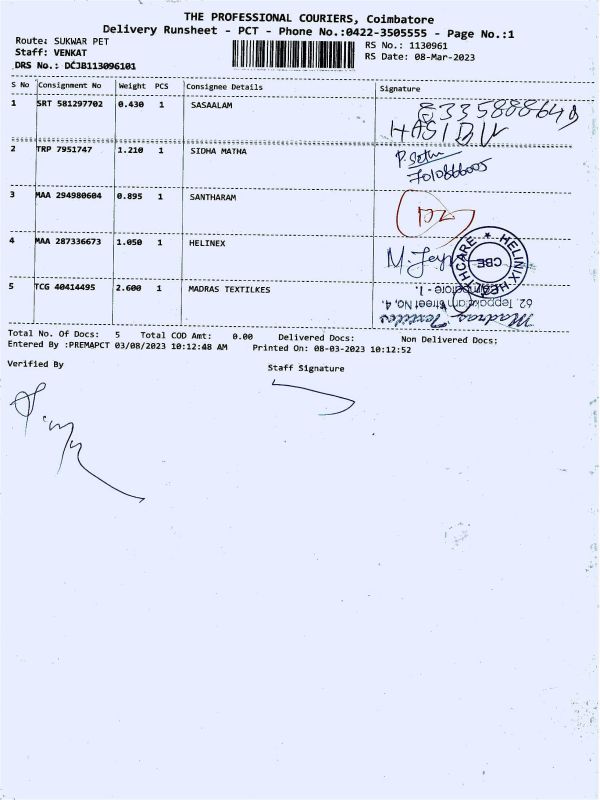 THE PROFESSIONAL COURIERS, Coimbatore
Delivery Runsheet - PCT - Phone No.:0422-3505555 - Page No.:1
Route: SUKWAR PET
RS No.: 1130961
Staff: VENKAT
RS Date: 08-Mar-2023
DRS No.: DCJB113096101
S No Consignment No Weight PCS Consignee Details Signature
1 SRT 581297702 0.430 1 SASAALAM
2 TRP 7951747 1.210 1 SIDHA MATHA
3 MAA 294980604 0.895 1 SANTHARAM
4 MAA 287336673 1.050 1 HELINEX
HELINIX HEALTHCARE ★ CBE
5 TCG 40414495 2.600 1 MADRAS TEXTILKES
Madras Textiles
62, Teppakulam Street No. 4,
Coimbatore - 1.
Total No. Of Docs: 5 Total COD Amt: 0.00 Delivered Docs: Non Delivered Docs:
Entered By :PREMAPCT 03/08/2023 10:12:48 AM Printed On: 08-03-2023 10:12:52
Verified By
Staff Signature